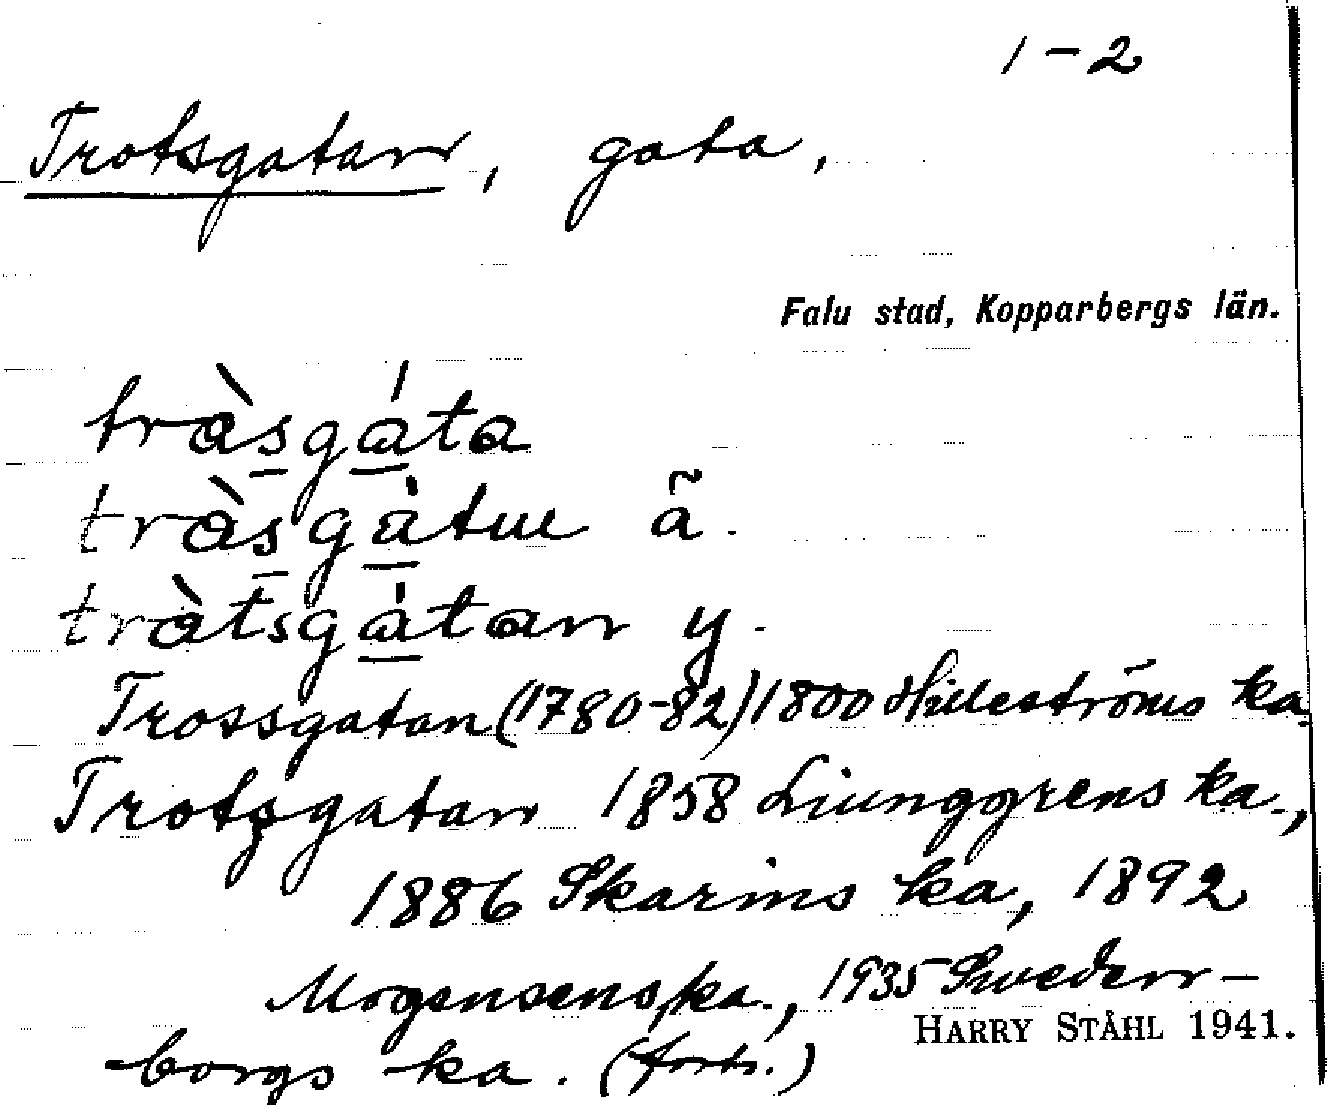 1-2
Trotsgatan, gata,
Falu stad, Kopparbergs län.
tràsgáta
tràsgàtuu ã.
tràtsgàtan y.
Trossgatan (1780-82) 1800 Hilleströms ka.
Trotsgatan 1858 Liunggrens ka.,
1886 Skarins ka, 1892
Mogensens ka., 1935 Sweden-
HARRY STÅHL 1941.
borgs ka. (forts.)